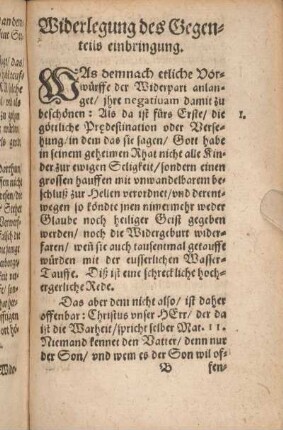 Widerlegung des Gegen-
teils einbringung.
WAs demnach etliche Vor-
würffe der Widerpart anlan-
get/ jhre negatiuam damit zu
beschönen: Als da ist fürs Erste/ die
1.
götliche Predestination oder Verse-
hung/ in dem das sie sagen/ Gott habe
in seinem geheimen Rhat nicht alle Kin-
der zur ewigen Seligkeit/ sondern einen
grossen hauffen mit vnwandelbarem be-
schluß zur Hellen verordnet/ vnd derent-
wegen so köndte jnen nimermehr weder
Glaube noch heiliger Geist gegeben
werden/ noch die Widergeburt wider-
faren/ weñ sie auch tausentmal getauffe
würden mit der eusserlichen Wasser-
Tauffe. Diß ist eine schreckliche hoch-
ergerliche Rede.
Das aber dem nicht also/ ist daher
offenbar: Christus vnser HErr/ der da
ist die Warheit/ spricht selber Mat. 11.
Niemand kennet den Vatter/ denn nur
der Son/ vnd wem es der Son wil of-
B fen-